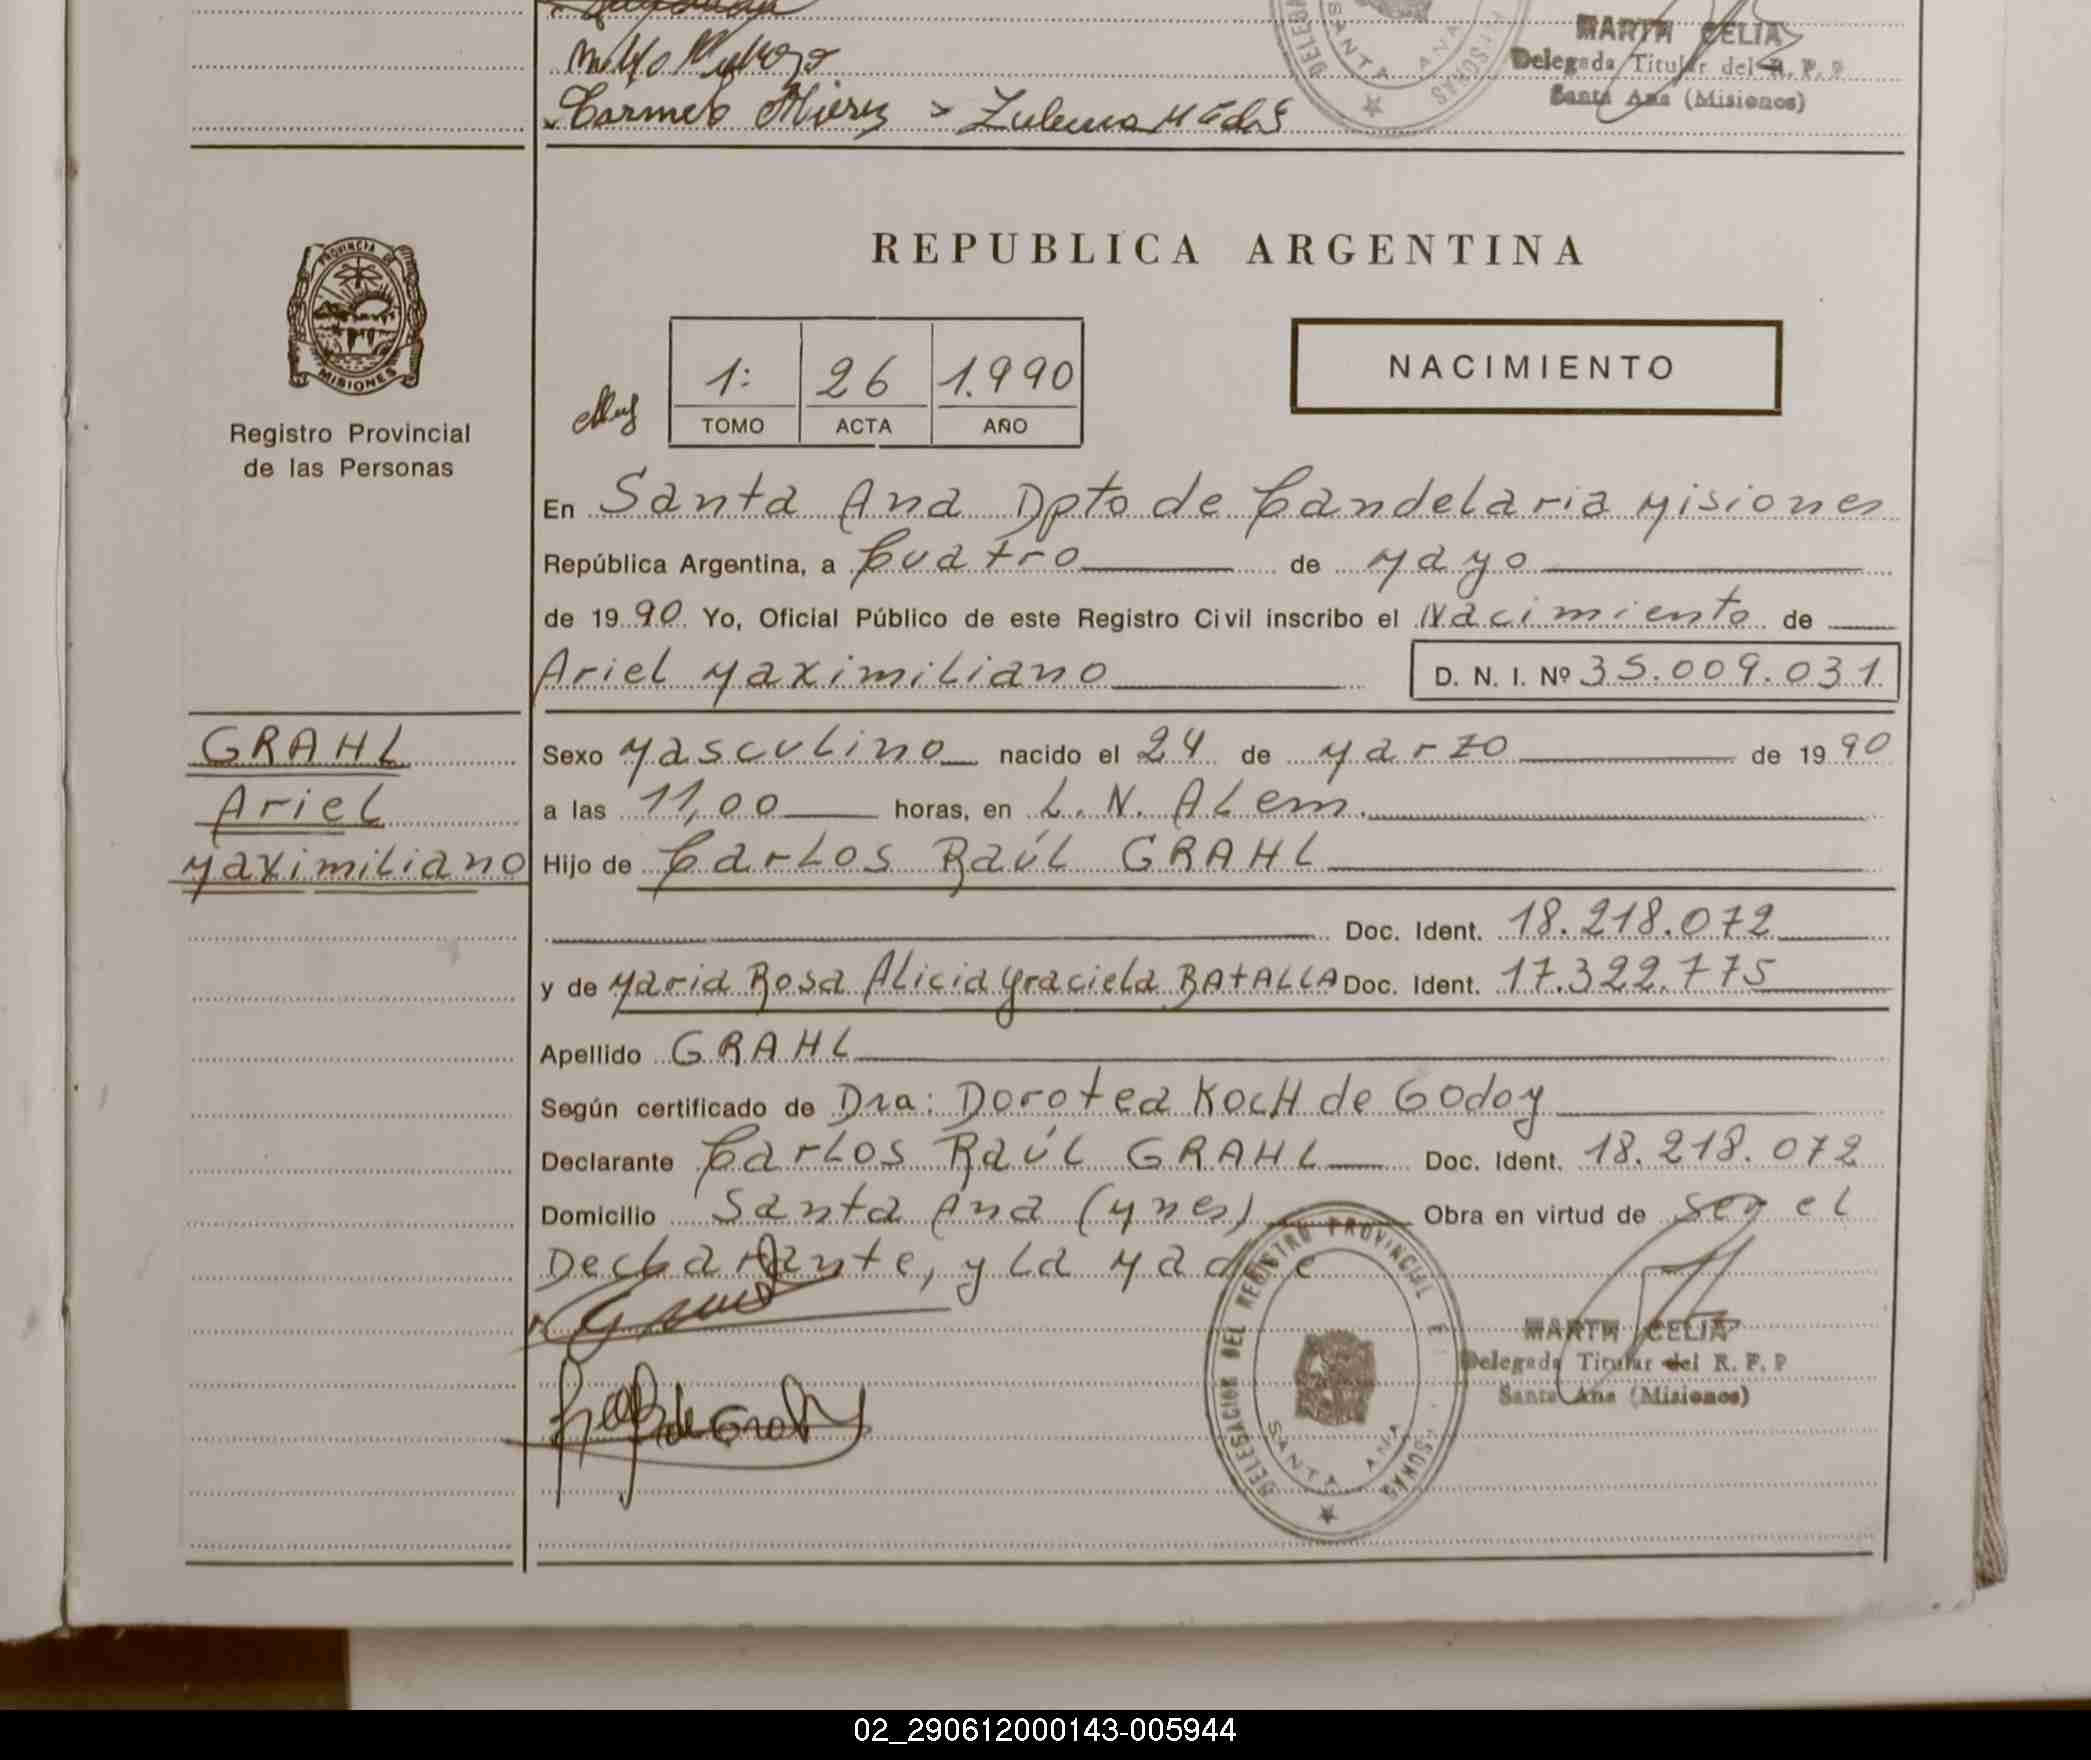 MARTA CELIA
Delegada Titular del R. P. P
Santa Ana (Misiones)
Carmen
DELEGA
SANTA ANA
REPUBLICA ARGENTINA
PROVINCIA DE
MISIONES
Registro Provincial
de las Personas
1: 26 1.990
TOMO ACTA AÑO
NACIMIENTO
En Santa Ana Dpto de Candelaria Misiones
República Argentina, a Cuatro de Mayo
de 1990 Yo, Oficial Público de este Registro Civil inscribo el Nacimiento de
Ariel Maximiliano D. N. I. Nº 35.009.031
GRAHL
Ariel
Maximiliano
Sexo Masculino nacido el 24 de Marzo de 1990
a las 11,00 horas, en L. N. ALem.
Hijo de Carlos Raúl GRAHL
Doc. Ident. 18.218.072
y de Maria Rosa Alicia Graciela BATALLA Doc. Ident. 17.322.775
Apellido GRAHL
Según certificado de Dra: Dorotea KocH de Godoy
Declarante Carlos Raúl GRAHL Doc. Ident. 18.218.072
Domicilio Santa Ana (Mnes) Obra en virtud de ser el
Declarante, y La Madre
DELEGACION DEL REGISTRO PROVINCIAL
SANTA ANA
MARTA CELIA
Delegada Titular del R. P. P
Santa Ana (Misiones)
de Grahl
02_290612000143-005944